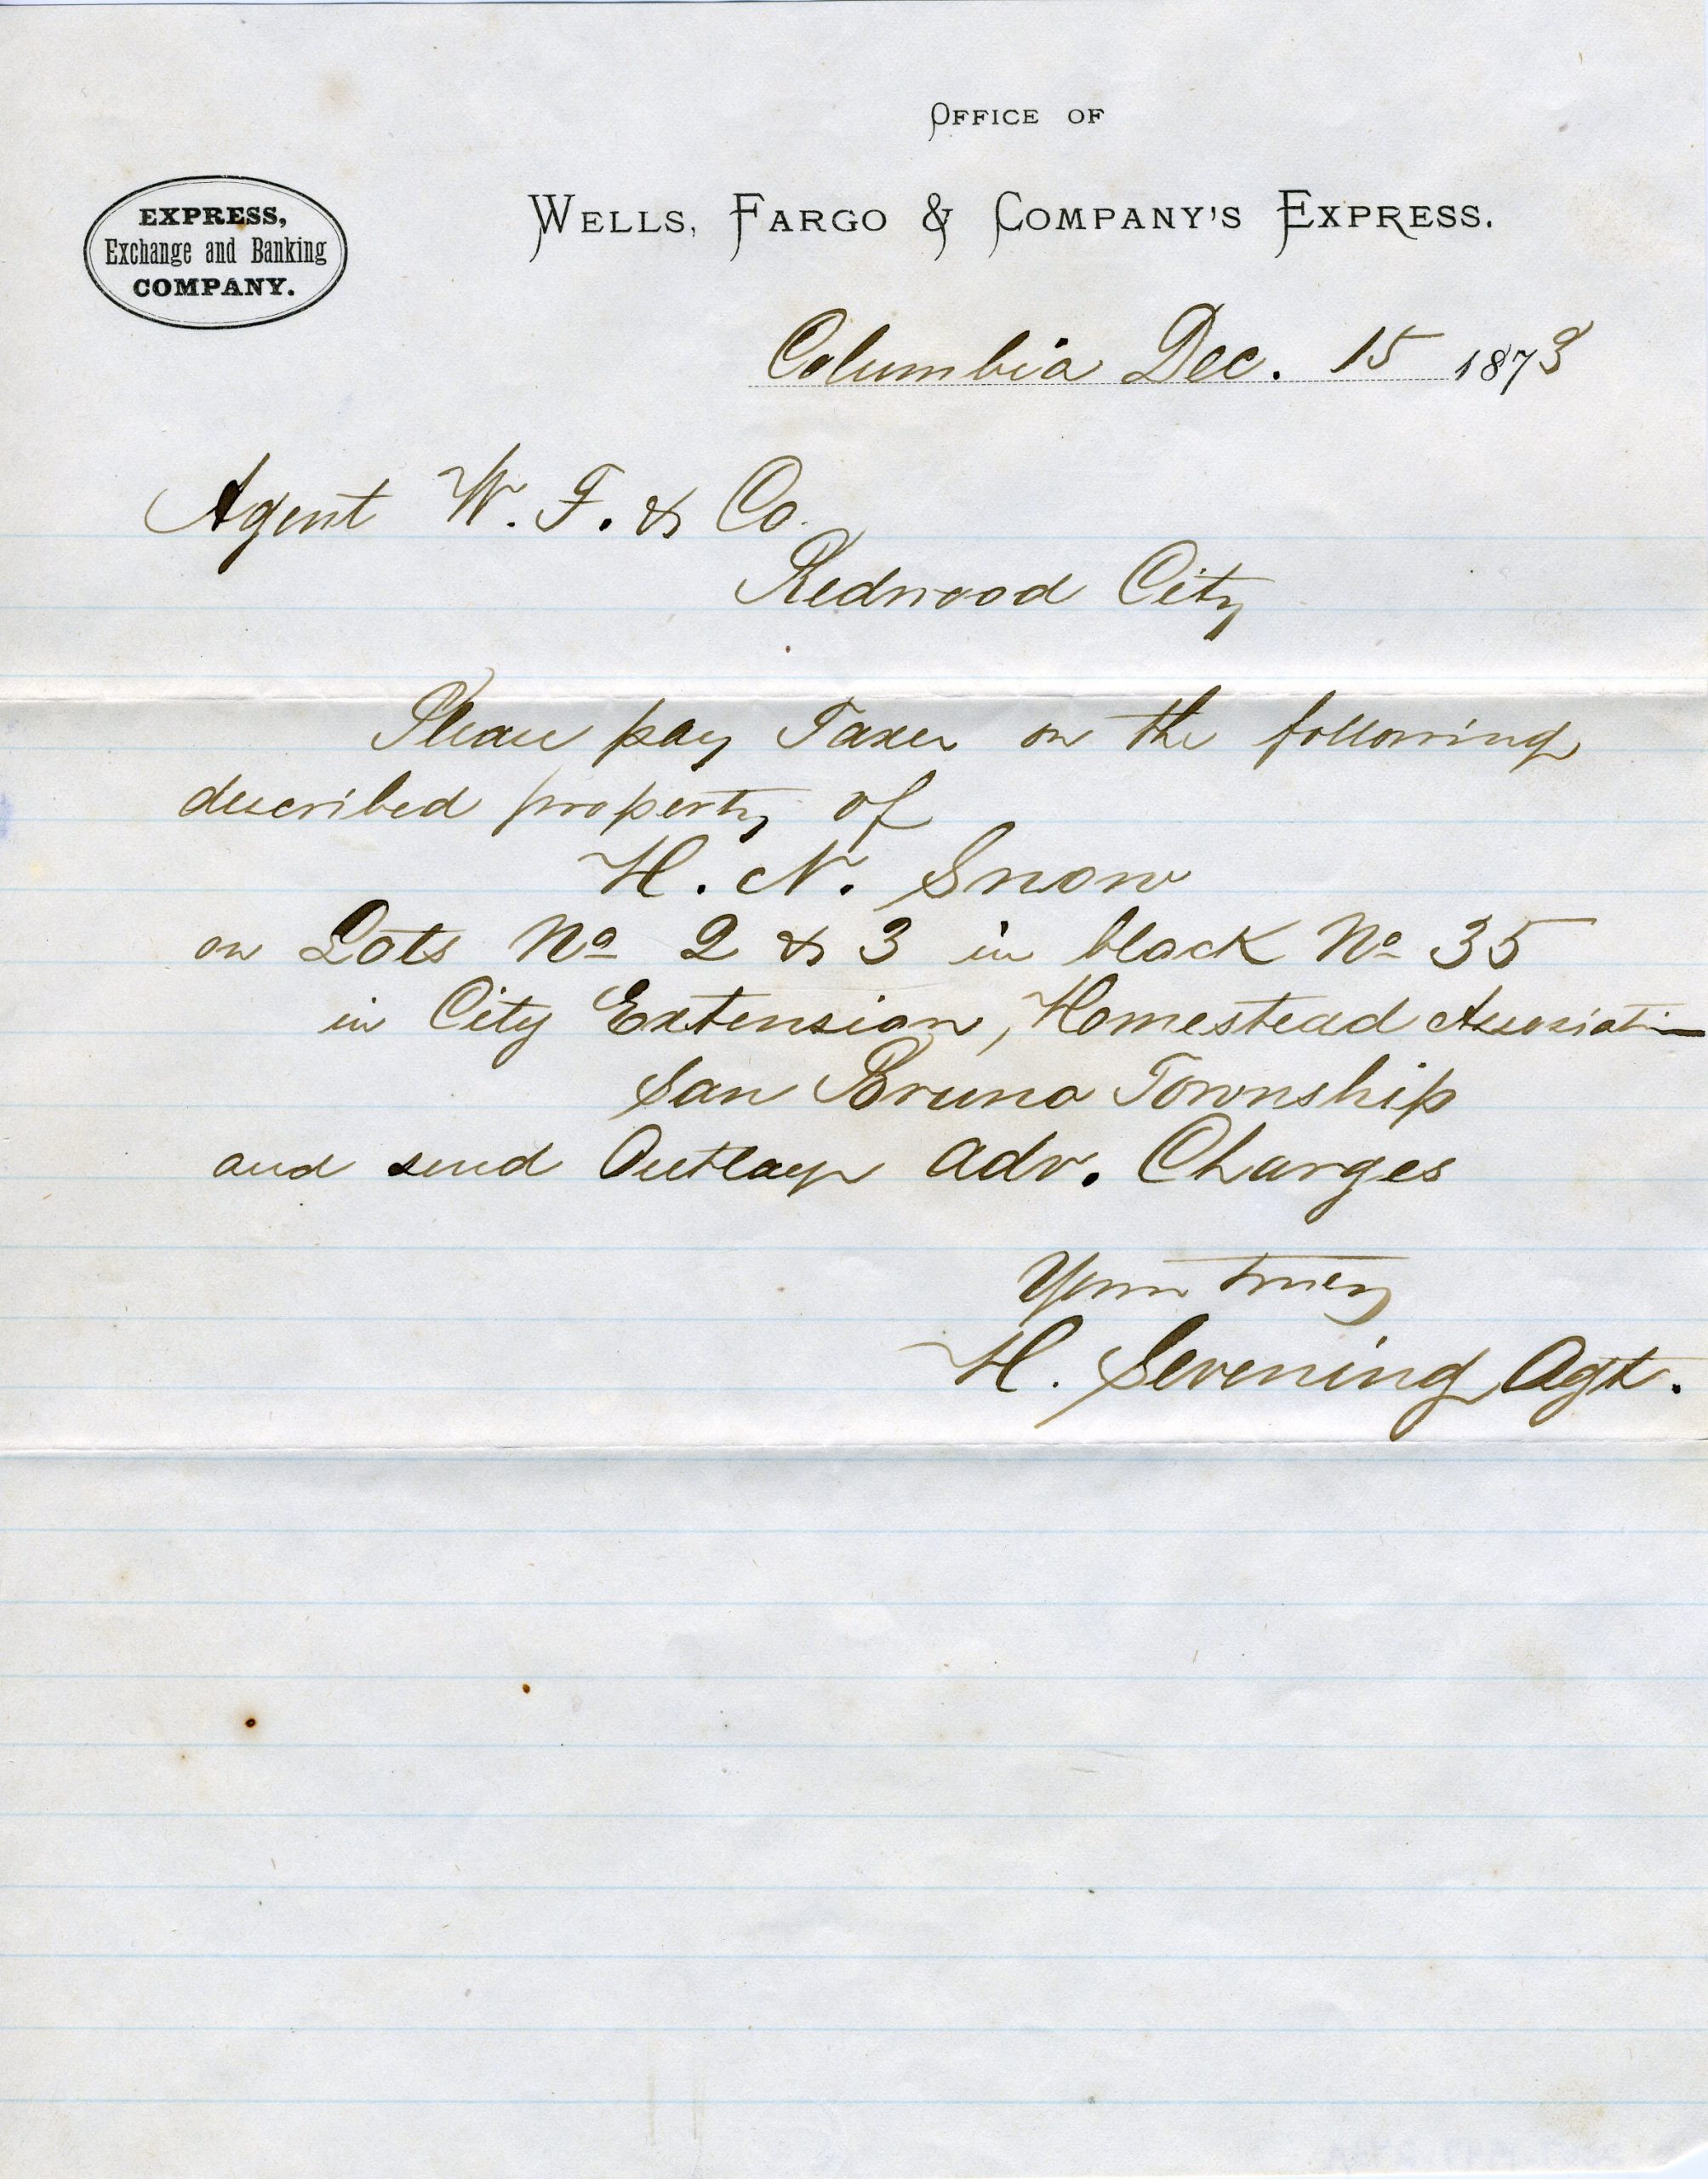 OFFICE OF
WELLS, FARGO & COMPANY'S EXPRESS.
EXPRESS,
Exchange and Banking
COMPANY.
Columbia Dec. 15 1873
Agent W. F. & Co.
Redwood City
Please pay Taxes on the following
described property of
H. N. Snow
on Lots No 2 & 3 in block No 35
in City Extension, Homestead Association
San Bruno Township
and send Outlay Adv. Charges
Yours truly
H. Sevening Agt.